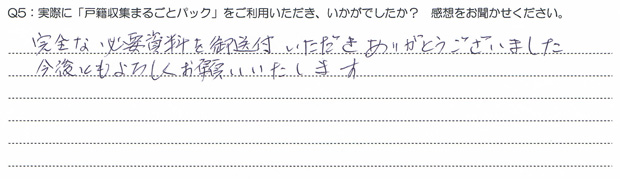 Q5：実際に「戸籍収集まるごとパック」をご利用いただき、いかがでしたか？ 感想をお聞かせください。
完全な必要資料を御送付いただきありがとうございました
今後ともよろしくお願いいたします